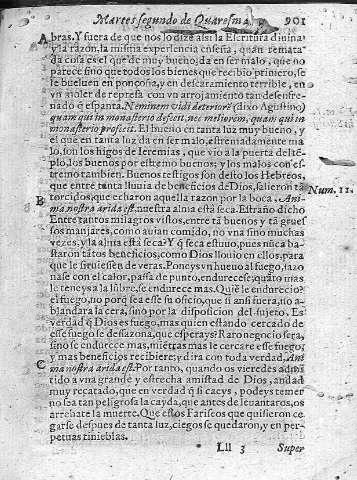 Martes segundo de Quaresma. 901
A bras. Y fuera de que nos lo dize assi la Escritura diuina
y la razon, la misma experiencia enseña, quan remata-
da cosa es el que de muy bueno, da en ser malo, que no
parece sino que todos los bienes que recibio primero, se
se bueluen en ponçoña, y en descaramiento terrible, en
vn moler de represa con vn arrojamiento tan desenfre-
nado q̃ espanta. Neminem vidi deteriorẽ (dixo Agustino)
quam qui in monasterio defecit, nec meliorem, quam qui in
monasterio proficit. El bueno en tanta luz muy bueno, y
el que en tanta luz da en ser malo, estremadamente ma
lo, son los higos de Ieremias, que vio a la puerta del tẽ-
plo, los buenos por estremo buenos, y los malos con es-
tremo tambien. Buenos testigos son desto los Hebreos,
que entre tanta lluuia de beneficios de Dios, salieron tã
Num. 11.
B torcidos, que echaron aquella razon por la boca. Ani-
ma nostra arida est, nuestra alma està seca. Estraño dicho
Entre tantos milagros vistos, entre tã buenos y tã grues
sos manjares, como auian comido, no vna sino muchas
vezes, y la alma està seca? Y q̃ seca estuuo, pues nũca ba-
staron tãtos beneficios, como Dios llouio en ellos, para
que le siruiessen de veras. Poneys vn hueuo al fuego, sazo
nase con el calor, passa de punto, endurecese; quãto mas
le teneys a la lũbre, se endurece mas. Quiẽ le endurecio?
el fuego, no porq̃ sea esse su oficio, que si ansi fuera, no a-
blandara la cera, sino por la disposicion del sujeto. Es
verdad q̃ Dios es fuego, mas quien estando cercado de
esse fuego se dessazona, que esperays? Raro negocio sera,
sino se endurece mas, miẽtras mas le cercare esse fuego,
y mas beneficios recibiere; y dira con toda verdad. Ani
C ma nostra arida est. Por tanto, quando os vieredes admi
tido a vna grande y estrecha amistad de Dios, andad
muy recatado, que en verdad q̃ si caeys, podeys temer
no sea tan peligrosa la cayda, que antes de leuantaros, os
arrebate la muerte. Que estos Fariseos que quisieron ce-
garse despues de tanta luz, ciegos se quedaron, y en per-
petuas tinieblas.
Lll 3 Super